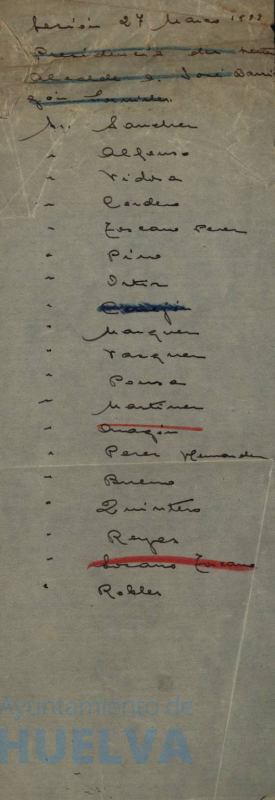 Sesión 27 Marzo 1933
Presidencia del señor
Alcalde D. José Barri
gón
Sr. Sanchez
" Alfonso
" Vidosa
" Cordero
" Toscano Perez
" Pino
" Ortiz
"
" Marquez
" Vazquez
" Ponsa
" Martinez
" Aragón
" Perez Hernandez
" Bueno
" Quintero
" Reyes
" Lozano Toscano
" Robles
Ayuntamiento de
HUELVA